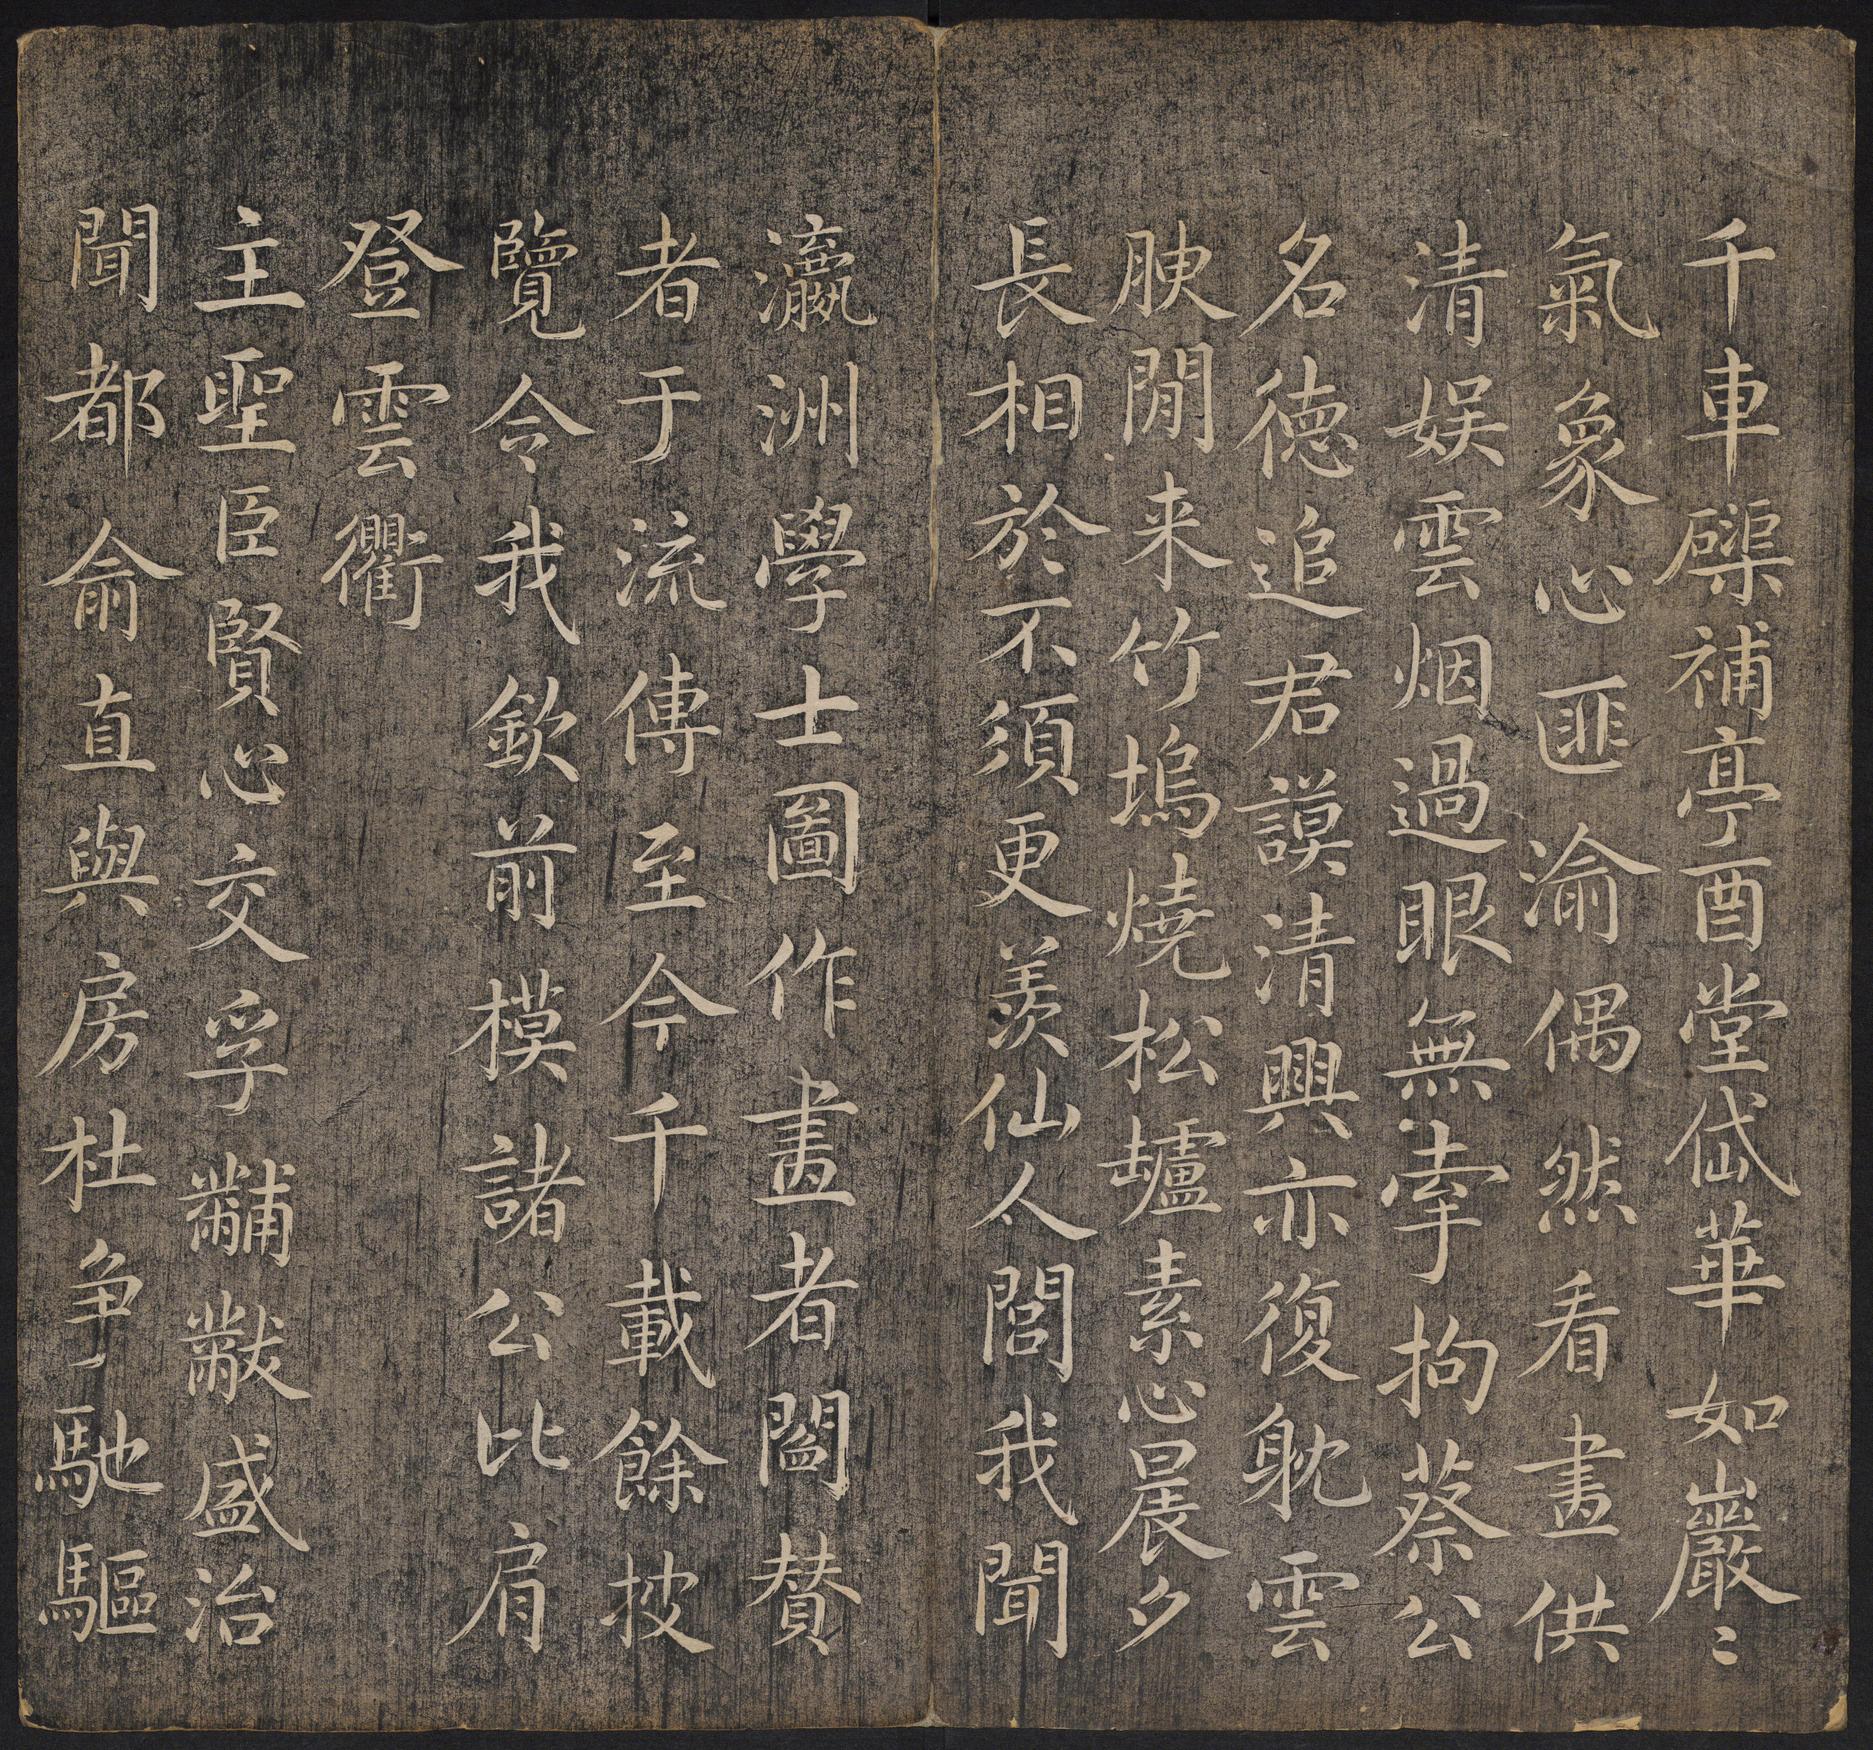 千車磲補亭酉堂岱華如巖〻
氣象心匪渝偶然看畫供
清娱雲烟過眼無牽拘蔡公
名德追君謨清興亦復躭雲
腴閒来竹塢燒松壚素心晨夕
長相於不須更羨仙人閭我聞
瀛洲學士圖作畫者閻賛
者于流傳至今千載餘披
覽令我欽前模諸公比肩
登雲衢
主聖臣賢心交孚黼黻盛治
聞都俞直與房杜争馳驅